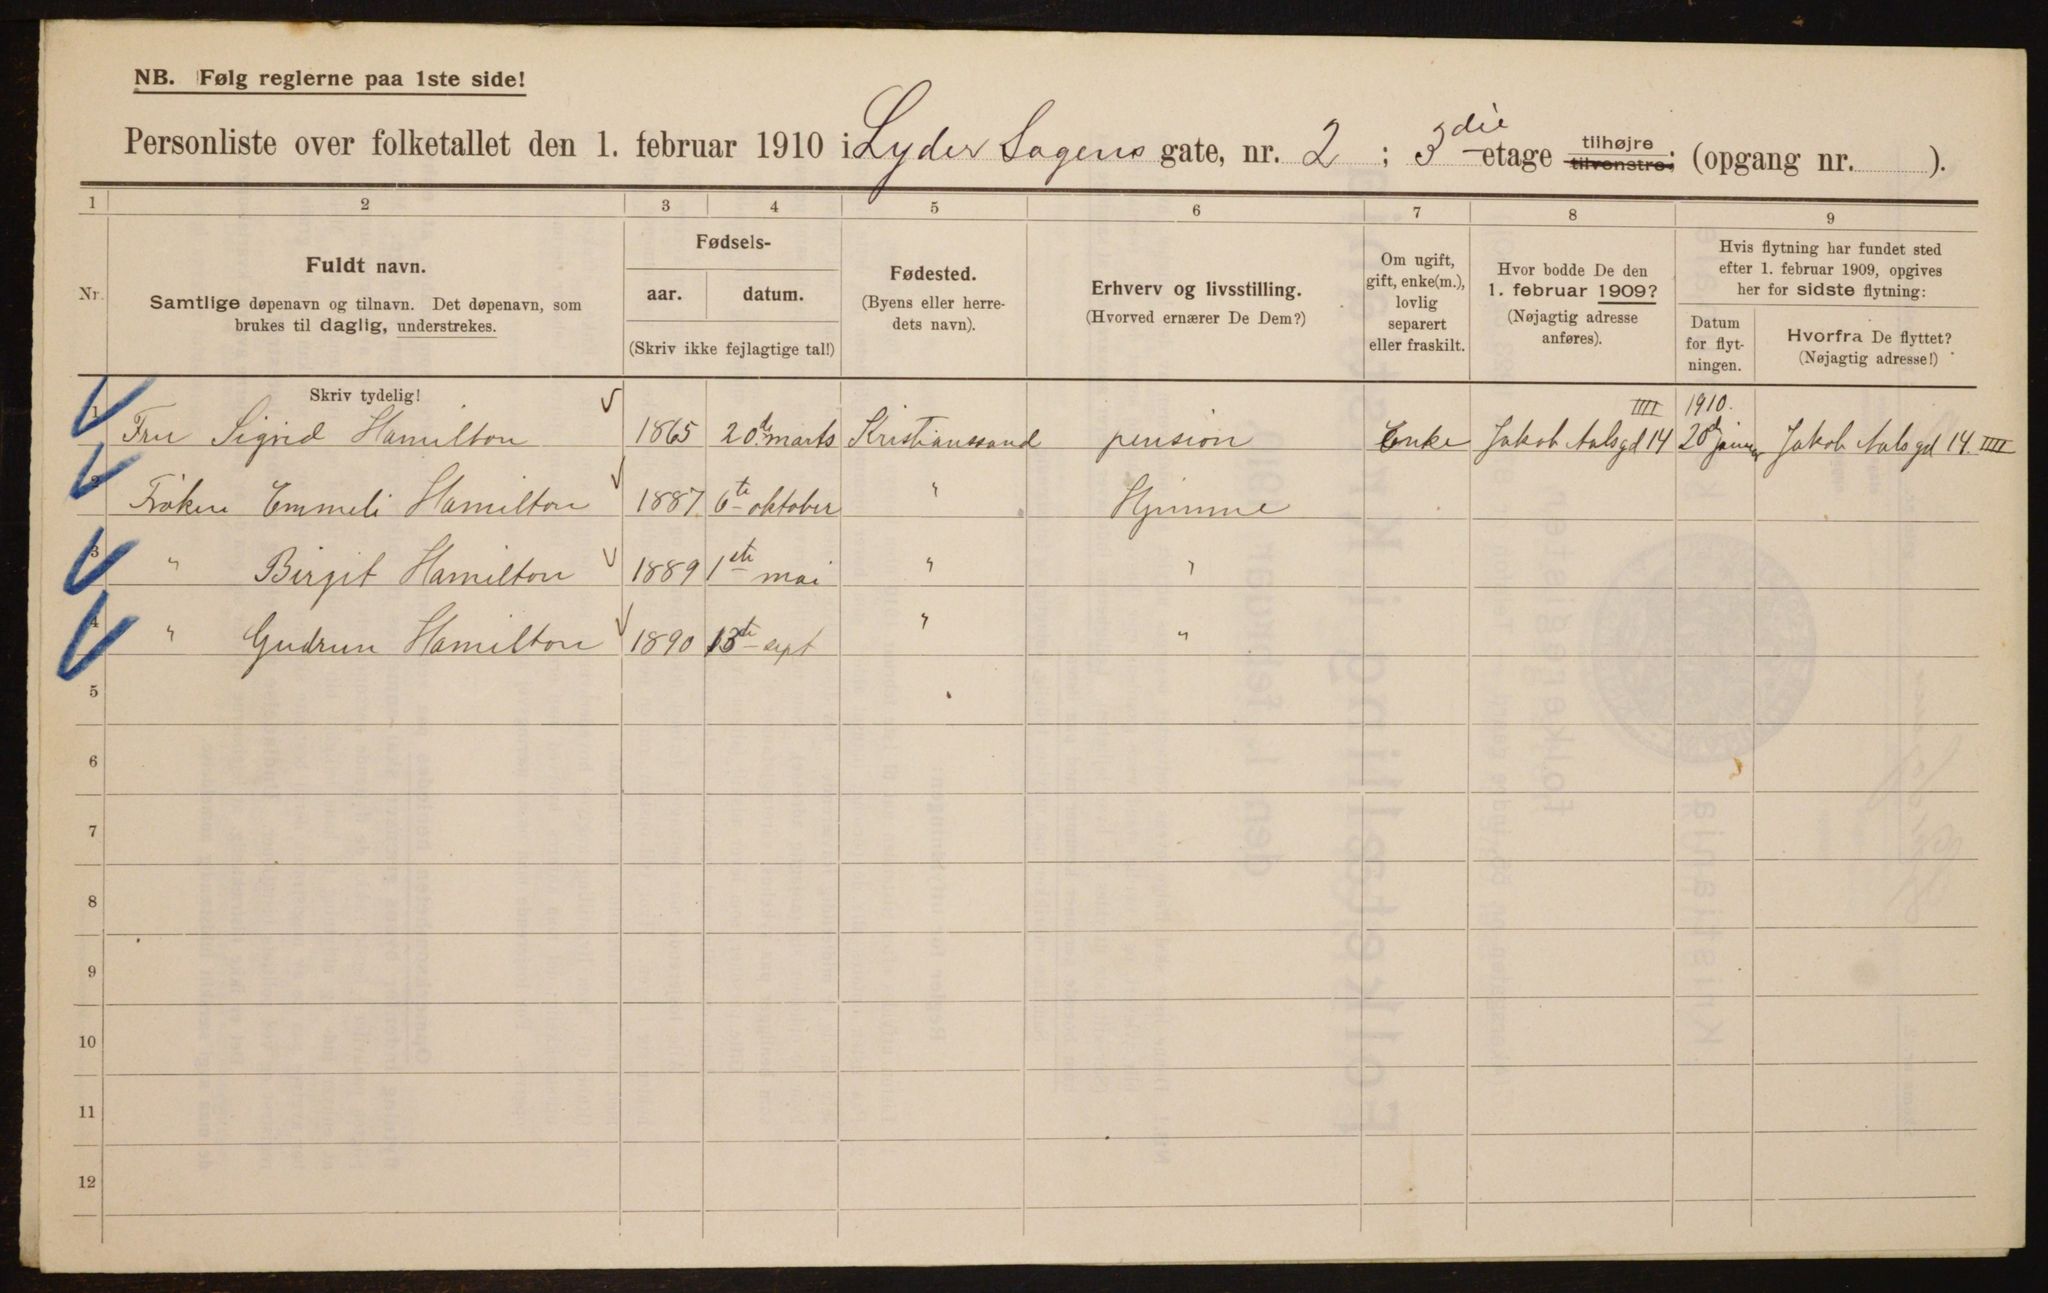 NB. Følg reglerne paa 1ste side!
Personliste over folketallet den 1. februar 1910 i Lyder Sagens gate, nr. 2 ; 3die etage tilhøjre tilvenstre; (opgang nr. ).
1 2 3 4 5 6 7 8 9
Nr.
Fuldt navn.
Samtlige døpenavn og tilnavn. Det døpenavn, som
brukes til daglig, understrekes.
Fødsels-
aar. datum.
(Skriv ikke fejlagtige tal!)
Fødested.
(Byens eller herre-
dets navn).
Erhverv og livsstilling.
(Hvorved ernærer De Dem?)
Om ugift,
gift, enke(m.),
lovlig
separert
eller fraskilt.
Hvor bodde De den
1. februar 1909?
(Nøjagtig adresse
anføres).
Hvis flytning har fundet sted
efter 1. februar 1909, opgives
her for sidste flytning:
Datum
for flyt-
ningen.
Hvorfra De flyttet?
(Nøjagtig adresse!)
Skriv tydelig!
1 Fru Sigrid Hamilton 1865 20de marts Kristianssand pension Enke Jakob Aalsgd 14 IIII 1910. 20d januar Jakob Aalsgd 14. IIII
2 Frøken Emmeli Hamilton 1887 6te oktober " Hjemme
3 " Birgit Hamilton 1889 1ste mai " "
4 " Gudrun Hamilton 1890 13te sept " "
5
6
7
8
9
10
11
12